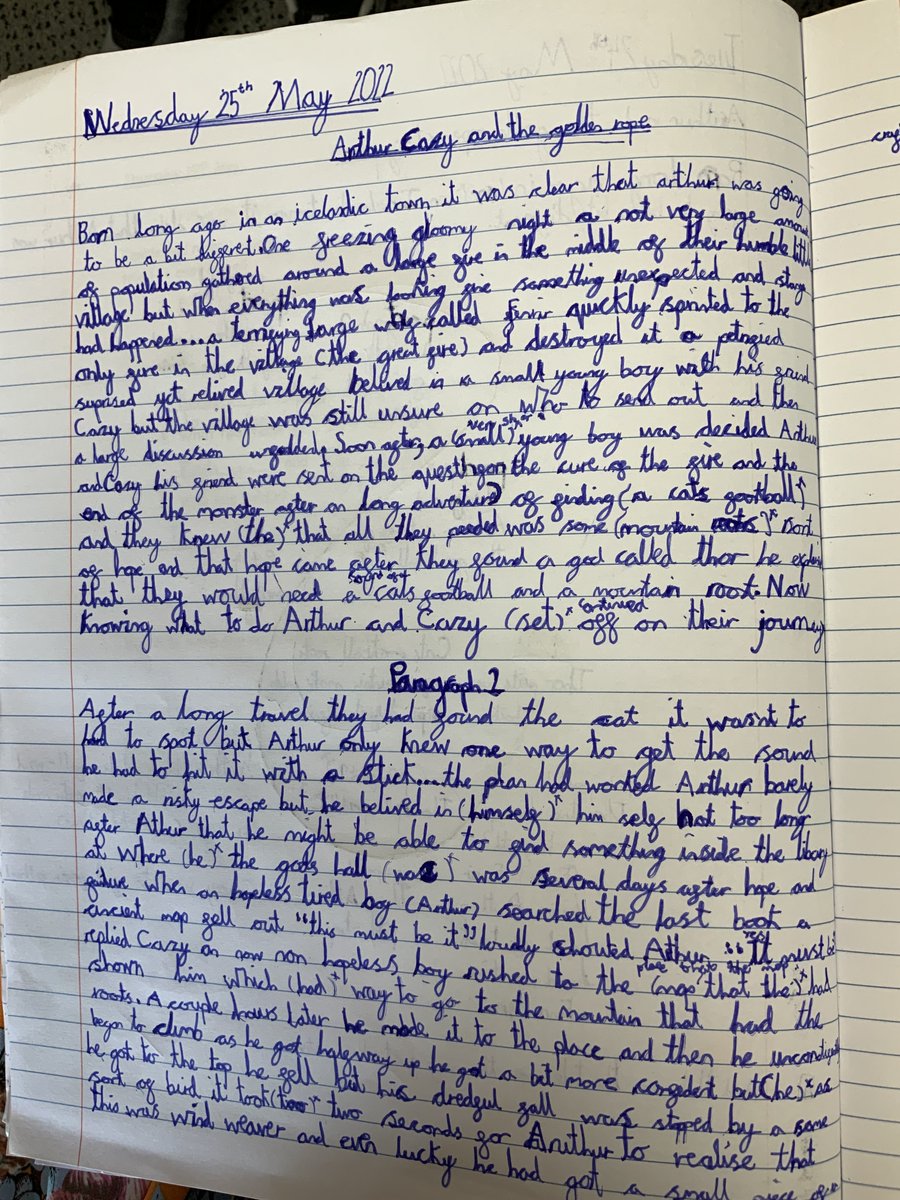 Wednesday 25th May 2022
Arthur Cazy and the golden rope
Born long ago in an icelandic town it was clear that arthur was going
to be a bit different. One freezing gloomy night a not very large amount
of population gathered around a large fire in the middle of their humble little
village but when everything was looking fine something unexpected and strange
had happened....a terrifying large wolf called fenrir quickly sprinted to the
only fire in the village (the great fire) and destroyed it a petrified
suprised yet relived village belived in a small young boy with his friend
Cazy but the village was still unsure on who to send out and then
a large discussion unfolded. Soon after, a (small)* very short young boy was decided Arthur
and Cazy his friend were sent on the quest for the cure of the fire and the
end of the monster after an long adventure of finding (a cats football)*
and they knew (the)* that all they needed was some (mountain roots)* sort
of hope and that hope came after they found a god called thor he
that they would need a sound of cats football and a mountain root. Now
knowing what to do Arthur and Cazy (set)* continued off on their journey
Paragraph 2
After a long travel they had found the cat it wasnt to
had to spot but Arthur only knew one way to get the sound
he had to hit it with a stick...the plan had worked Arthur barely
made a risky escape but he belived in (himself)* him self not too long
after Athur that he might be able to find something inside the libary
at where (he)* the gods hall (was)* was several days after hope and
failure when an hopeless tired boy (Arthur) searched the last book a
ancient map fell out "this must be it" loudly showted Arthur "yes It must be
replied Cazy an now non hopeless boy rushed to the place what the map (map that the)* had
shown him which (had)* way to go to the mountain that had the
roots. A couple hours later he made it to the place and then he
began to climb as he got halfway up he got a bit more confident but (he)* as
he got to the top he fell but his dredful fall was stopped by a some
sort of bird it took (two)* two seconds for Aruthur to realise that
this was wind weaver and even lucky he had got a small piece of